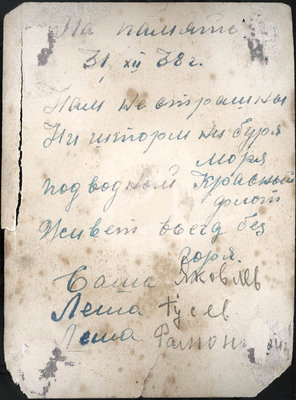 На память
31/XII 38 г.
Нам не страшны
Ни шторм ни буря
моря
подводный Красный
флот
живет всегда без
горя.
Саша Яковлев
Леша Гусев
Леша